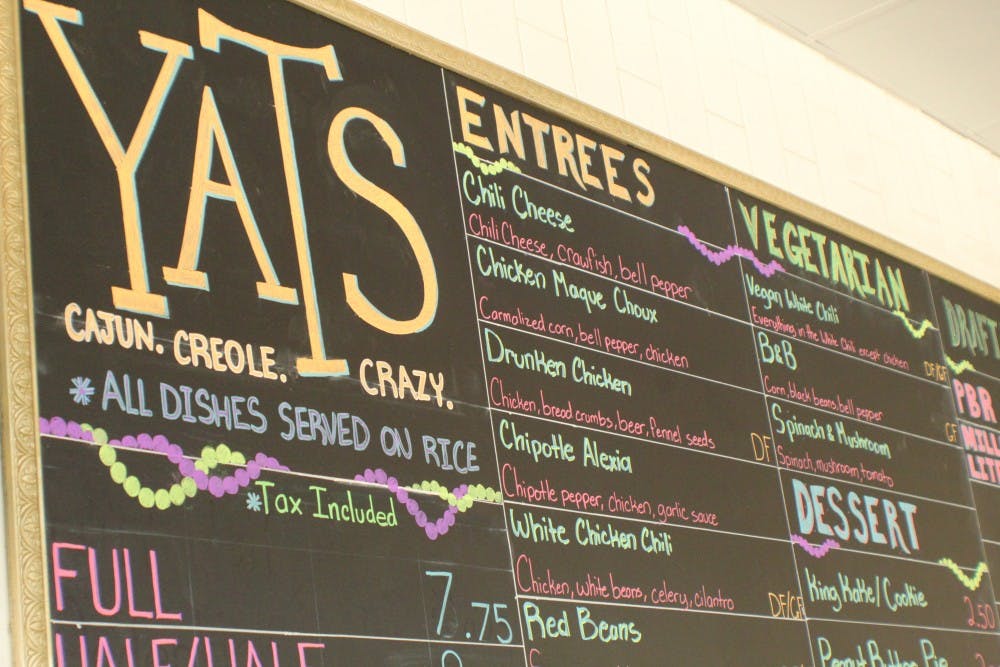 YATS
CAJUN. CREOLE. CRAZY.
*ALL DISHES SERVED ON RICE
*Tax Included
FULL 7.75
HALF/HALF
ENTREES
Chili Cheese
Chili Cheese, crawfish, bell pepper
Chicken Maque Choux
Carmalized corn, bell pepper, chicken
Drunken Chicken
Chicken, bread crumbs, beer, fennel seeds DF
Chipotle Alexia
Chipotle pepper, chicken, garlic sauce
White Chicken Chili
Chicken, white beans, celery, cilantro DF/GF
Red Beans
VEGETARIAN
Vegan White Chili
Everything in the White Chili except chicken DF/GF
B&B
Corn, black beans, bell pepper GF
Spinach & Mushroom
Spinach, mushroom, tomato
DESSERT
King Kake/Cookie 2.50
Peanut Butter Pie
DRAFT
PBR
MILL
LITE